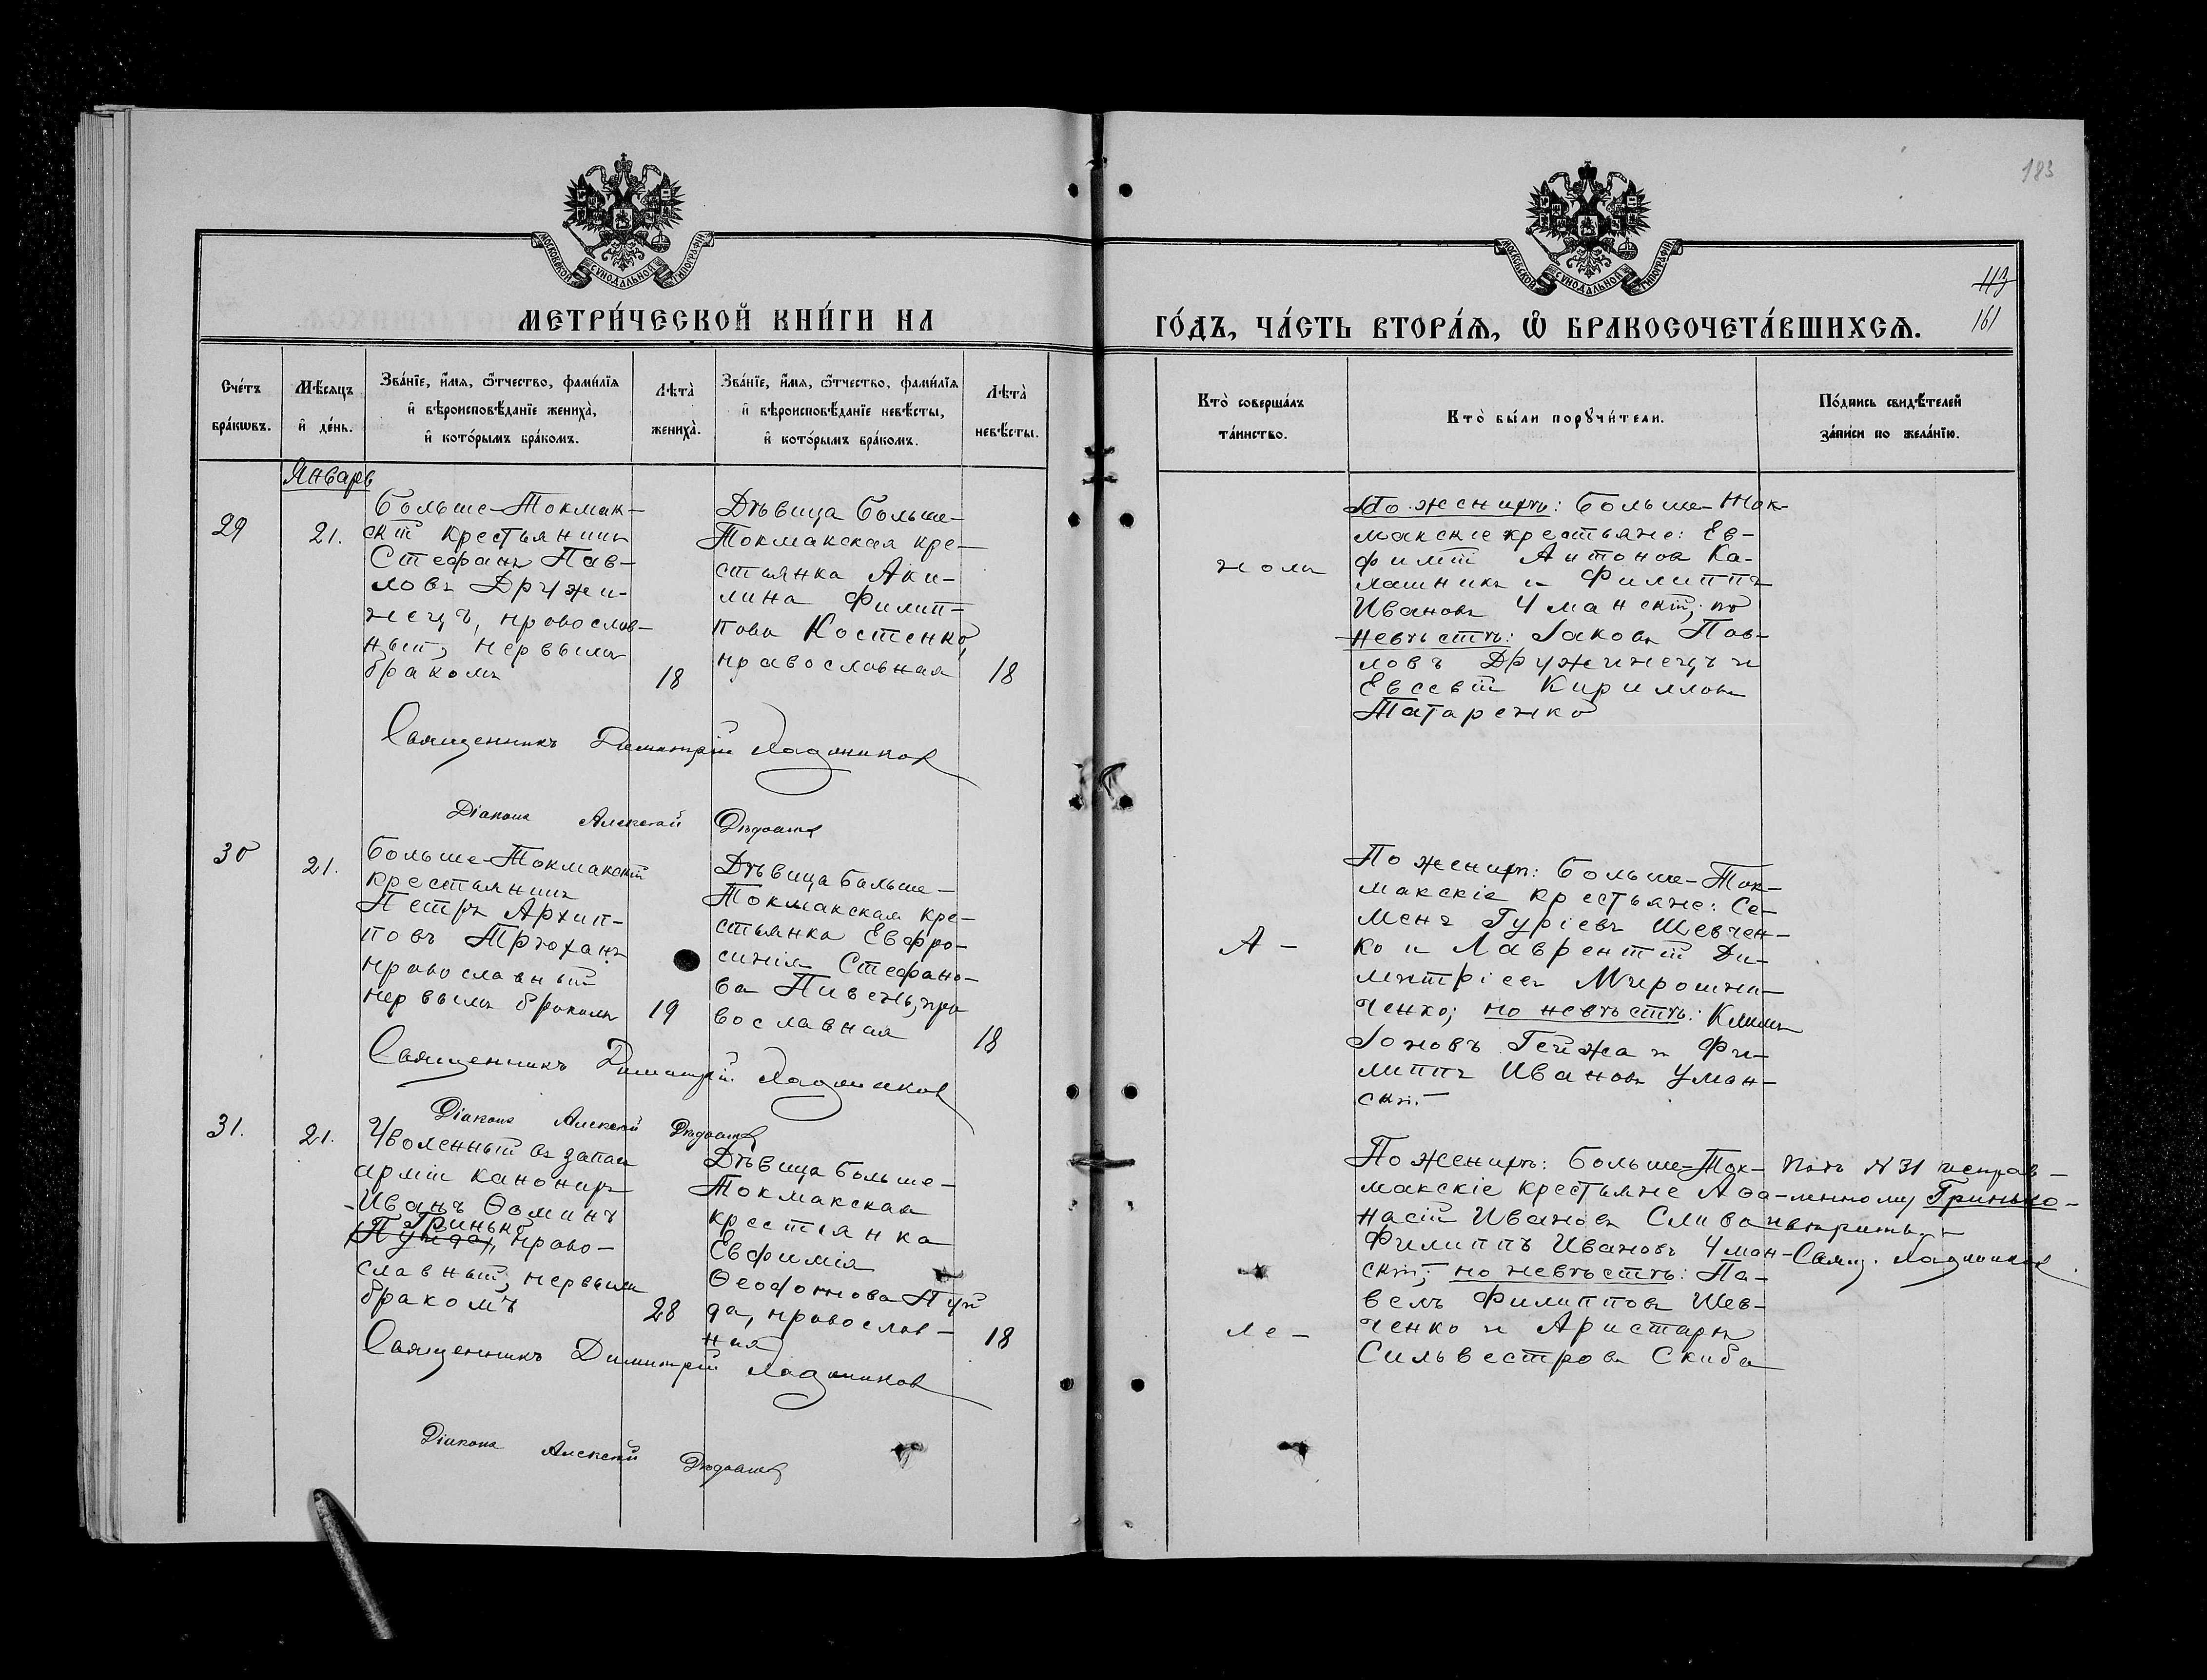 183
МОСКОВСКОЙ СѴНОДАЛЬНОЙ ТИПОГРАФІИ
МОСКОВСКОЙ СѴНОДАЛЬНОЙ ТИПОГРАФІИ
113
161
МЕТРИ́ЧЕСКОЙ КНИ́ГИ НА
ГО́ДЪ, ЧА́СТЬ ВТОРА́Ѧ, Ѡ҆ БРАКОСОЧЕТА́ВШИХСѦ.
Сче́тъ
бра́кѡвъ.
Мѣ́сѧцъ
и҆ де́нь.
Зва́нїе, и҆́мѧ, ѻ҆́тчество, фами́лїѧ
и҆ вѣроисповѣ́данїе жениха̀,
и҆ кото́рымъ бра́комъ.
Лѣта̀
жениха̀.
Зва́нїе, и҆́мѧ, ѻ҆́тчество, фами́лїѧ
и҆ вѣроисповѣ́данїе невѣ́сты,
и҆ кото́рымъ бра́комъ.
Лѣта̀
невѣ́сты.
Кто̀ соверша́лъ
та́инство.
Кто̀ бы́ли порꙋчи́тели.
По́дпись свидѣ́телей
за́писи по жела́нїю.
Январь
29
21.
Больше-Токмак-
скій крестьянинъ
Стефанъ Пав-
ловъ Дружи-
нецъ, православ-
ный, первымъ
бракомъ
18
Дѣвица Больше-
Токмакская кре-
стьянка Аки-
лина Филип-
пова Костенко,
православная
18
По женихѣ: Больше-Ток-
макскіе крестьяне: Ев-
фимій Антоновъ Ка-
лашникъ и Филиппъ
Ивановъ Уманскій; по
невѣстѣ: Іаковъ Пав-
ловъ Дружинецъ и
Евсевій Кирилловъ
Татаренко
Священникъ Димитрій Ладжиков
Діаконъ Алексій
30
21.
Больше-Токмакскій
крестьянинъ
Петръ Архип-
повъ Трюханъ
православный
первымъ бракомъ
19
Дѣвица Больше-
Токмакская кре-
стьянка Евфро-
синія Стефано-
ва Пивень, пра
вославная
18
А -
По женихѣ: Больше-Ток-
макскіе крестьяне: Се-
менъ Гуріевъ Шевчен-
ко и Лаврентій Ди-
митріевъ Мирошни-
ченко; по невѣстѣ: Климъ
Іоновъ Гейжа и Фи-
липпъ Ивановъ Уман-
скій.
Священникъ Димитрій Ладжиков
Діаконъ Алексій
31.
21.
Уволенный въ запасъ
арміи канониръ
Иванъ Ѳоминъ
Гринько
Пуйда, право-
славный, первымъ
бракомъ
28
Дѣвица Больше-
Токмакская
крестьянка
Евфимія
Ѳеофонова Пуй
да, православ-
ная
18
ле -
По женихѣ: Больше-Ток-
макскіе крестьяне Аѳа-
насій Ивановъ Слива и
Филиппъ Ивановъ Уман-
скій; по невѣстѣ: Па-
велъ Филипповъ Шев-
ченко и Аристархъ
Сильвестровъ Скиба
Подъ № 31 исправ-
ленному Гринько-
вѣрить.
Свящ. Ладжиков
Священникъ Димитрій Ладжиков
Діаконъ Алексій